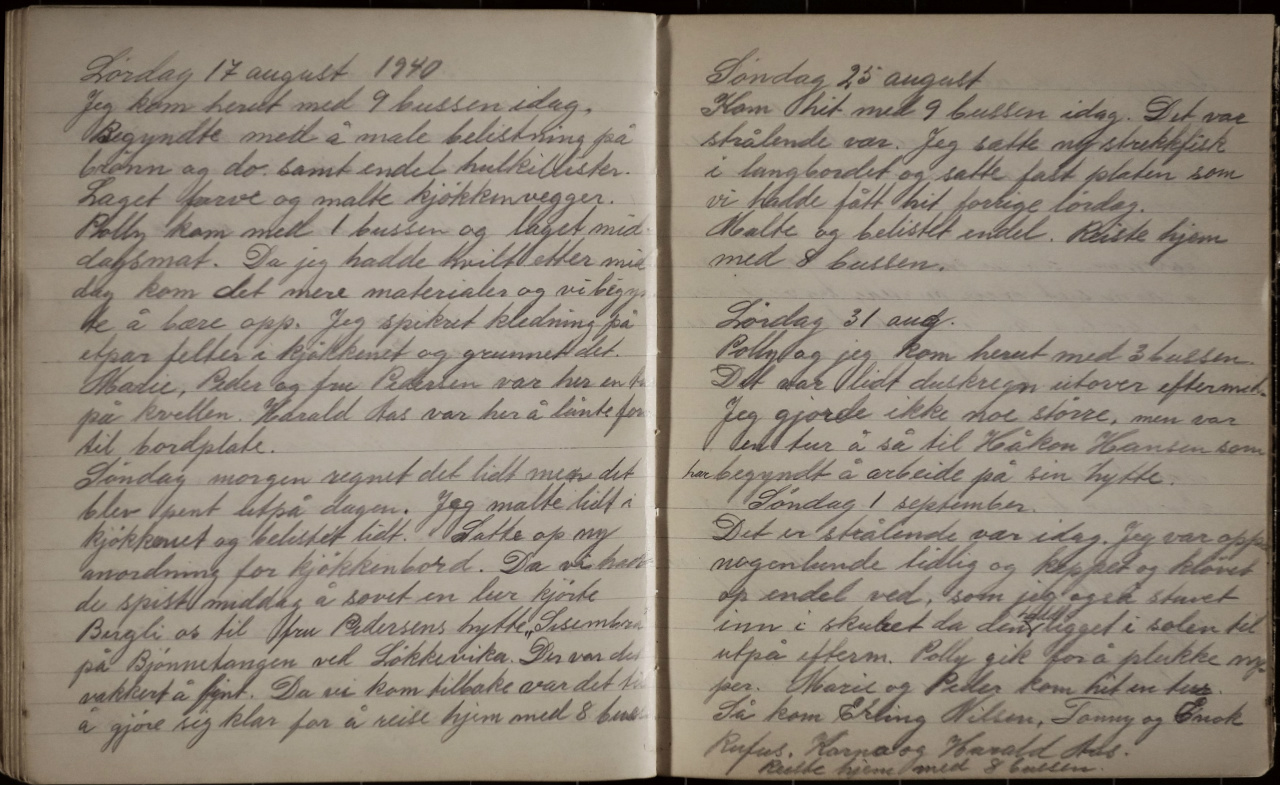 Lørdag 17 august 1940
Jeg kom herut med 9 bussen idag.
Begyndte med å male belistning på
brønn og do. samt endel hulkillister.
Laget farve og malte kjökkenvegger.
Polly kom med 1 bussen og laget mid-
dagsmat. Da jeg hadde hvilt etter mid
dag kom det mere materialer og vi begyn
te å bære opp. Jeg spikret kledning på
etpar felter i kjökkenet og grunnet det.
Marie, Peder og fru Pedersen var her en
på kvellen. Harald Aas var her å lånte
til bordplate.
Søndag morgen regnet det lidt men det
blev pent utpå dagen. Jeg malte lidt i
kjökkenet og belistet lidt. Satte op ny
anordning for kjökkenbord. Da vi hadd
de spist middag å sovet en lur kjörte
Bergli os til fru Pedersens hytte
på Bjönnetangen ved Lökkevika. Der var det
vakkert å fint. Da vi kom tilbake var det
å gjöre sig klar for å reise hjem med 8 buss
Søndag 25 august
Kom hit med 9 bussen idag. Det var
strålende vær. Jeg satte ny strekkfisk
i langbordet og satte fast platen som
vi hadde fått hit forrige lördag.
Malte og belistet endel. Reiste hjem
med 8 bussen.
Lördag 31 aug.
Polly og jeg kom herut med 3 bussen.
Det var lidt duskregn utover eftermid.
Jeg gjorde ikke noe större, men var
en tur å så til Håkon Hansen som
har begyndt å arbeide på sin hytte.
Söndag 1 september.
Det er strålende vær idag. Jeg var opp
nogenlunde tidlig og kappet og klövet
op endel ved, som jeg også stuvet
inn i skulet da den ligget i solen til
utpå efterm. Polly gik for å plukke ny-
per. Marie og Peder kom hit en tur.
Så kom Erling Nilsen, Tonny og Enok
Rufus. Karna og Harald Aas.
Reiste hjem med 8 bussen.